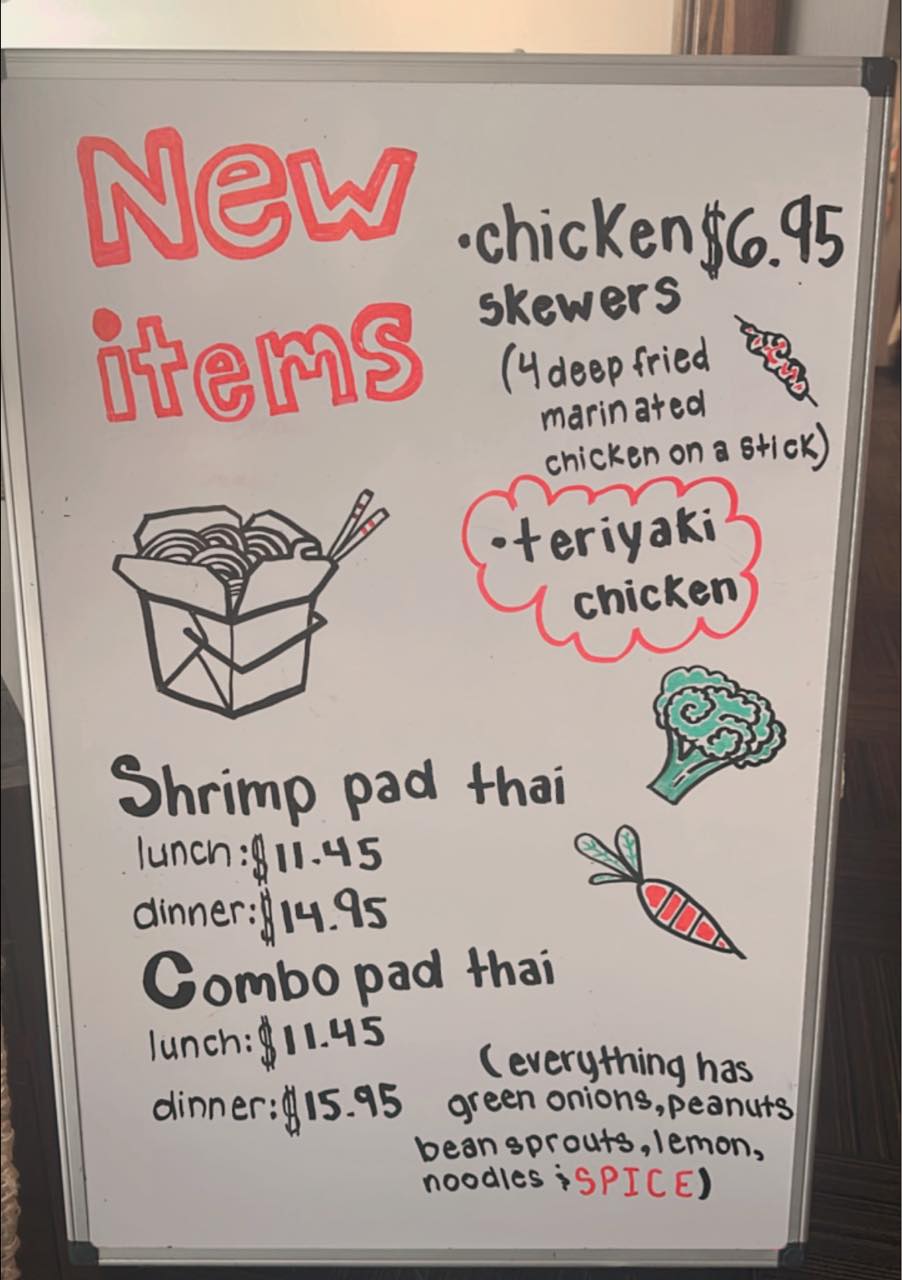 New
items
•chicken $6.95
skewers
(4 deep fried
marinated
chicken on a stick)
•teriyaki
chicken
Shrimp pad thai
lunch: $11.45
dinner: $14.95
Combo pad thai
lunch: $11.45
dinner: $15.95
(everything has
green onions, peanuts
bean sprouts, lemon,
noodles & SPICE)